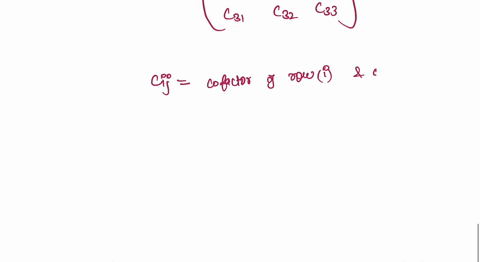 C31 C32 C33
Cij = cofactor of row(i) & c